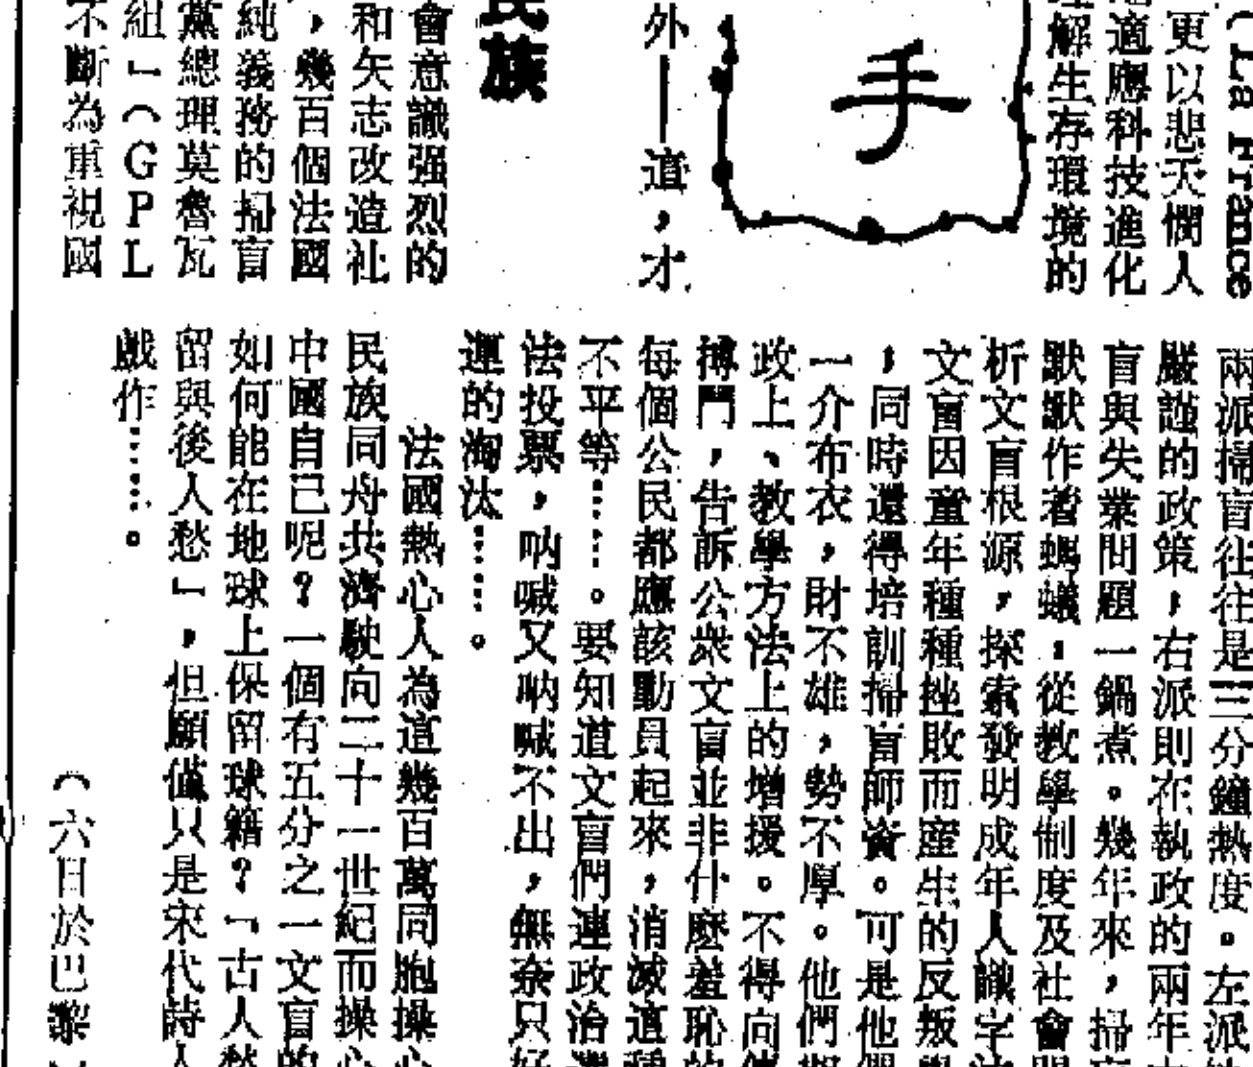 （La France
更以悲天憫人
適應科技進化
解生存環境的
手
外——道，才
民族
會意識强烈的
和矢志改造社
，幾百個法國
純義務的掃盲
黨總理莫魯瓦
組」（GPL
不斷為重視國
兩派掃盲往往是三分鐘熱度。左派
嚴謹的政策，右派則在執政的兩年
盲與失業問題一鍋煮。幾年來，掃
默默作着螞蟻。從教學制度及社會
析文盲根源，探索發明成年人識字
文盲因童年種種挫敗而產生的反叛
，同時還得培訓掃盲師資。可是他們
一介布衣，財不雄，勢不厚。他們
政上、教學方法上的增援。不得向
搏鬥，告訴公衆文盲並非什麽羞恥的
每個公民都應該動員起來，消滅這種
不平等……。要知道文盲們連政治
法投票，吶喊又吶喊不出，無奈只好
運的淘汰……。
法國熱心人為這幾百萬同胞操心
民族同舟共濟駛向二十一世紀而操心
中國自己呢？一個有五分之一文盲的
如何能在地球上保留球籍？「古人愁
留與後人愁」，但願僅只是宋代詩人
戲作……。
（六日於巴黎）